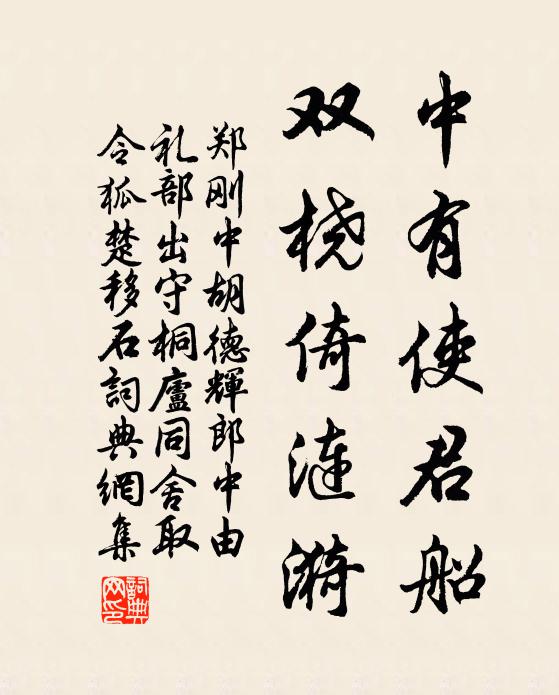 中有使君船
双桡倚涟漪
郑刚中胡德輝郎中由
礼部出守桐廬同舍取
令狐楚移石詞典網集
詞典網印